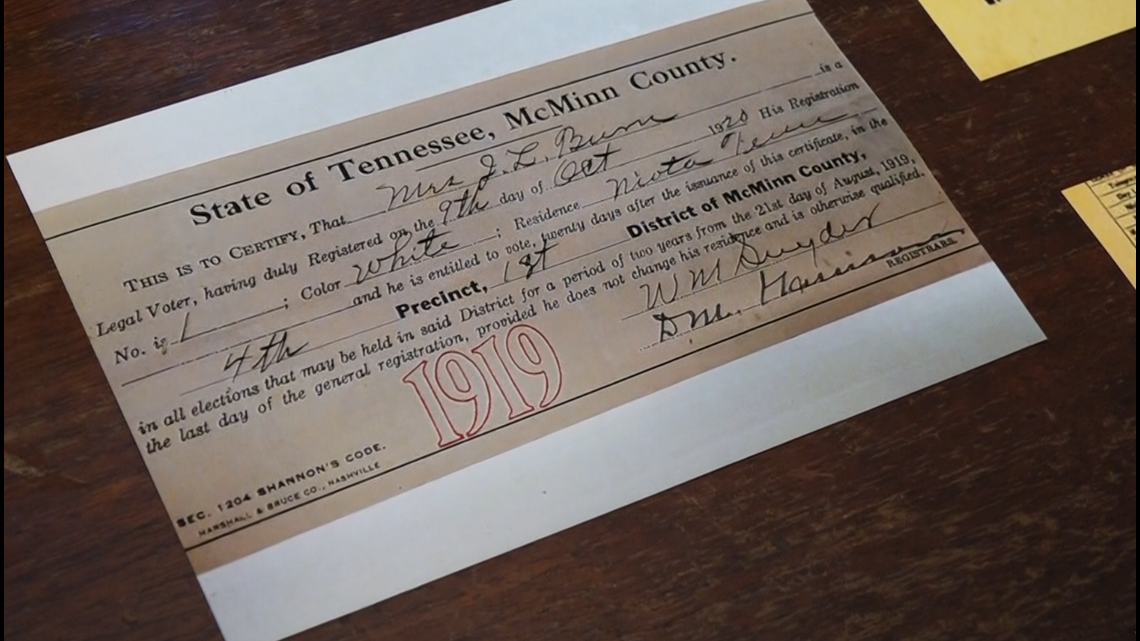 State of Tennessee, McMinn County.
THIS IS TO CERTIFY, That Mrs J. L. Burn is a
Legal Voter, having duly Registered on the 9th day of Oct 1920 His Registration
No. is 1 ; Color White ; Residence Niota Tenn
and he is entitled to vote, twenty days after the issuance of this certificate, in the
4th Precinct, 1st District of McMinn County,
in all elections that may be held in said District for a period of two years from the 21st day of August, 1919,
the last day of the general registration, provided he does not change his residence and is otherwise qualified.
W M Snyder
D. M.
REGISTRARS.
1919
SEC. 1204 SHANNON'S CODE.
MARSHALL & BRUCE CO., NASHVILLE